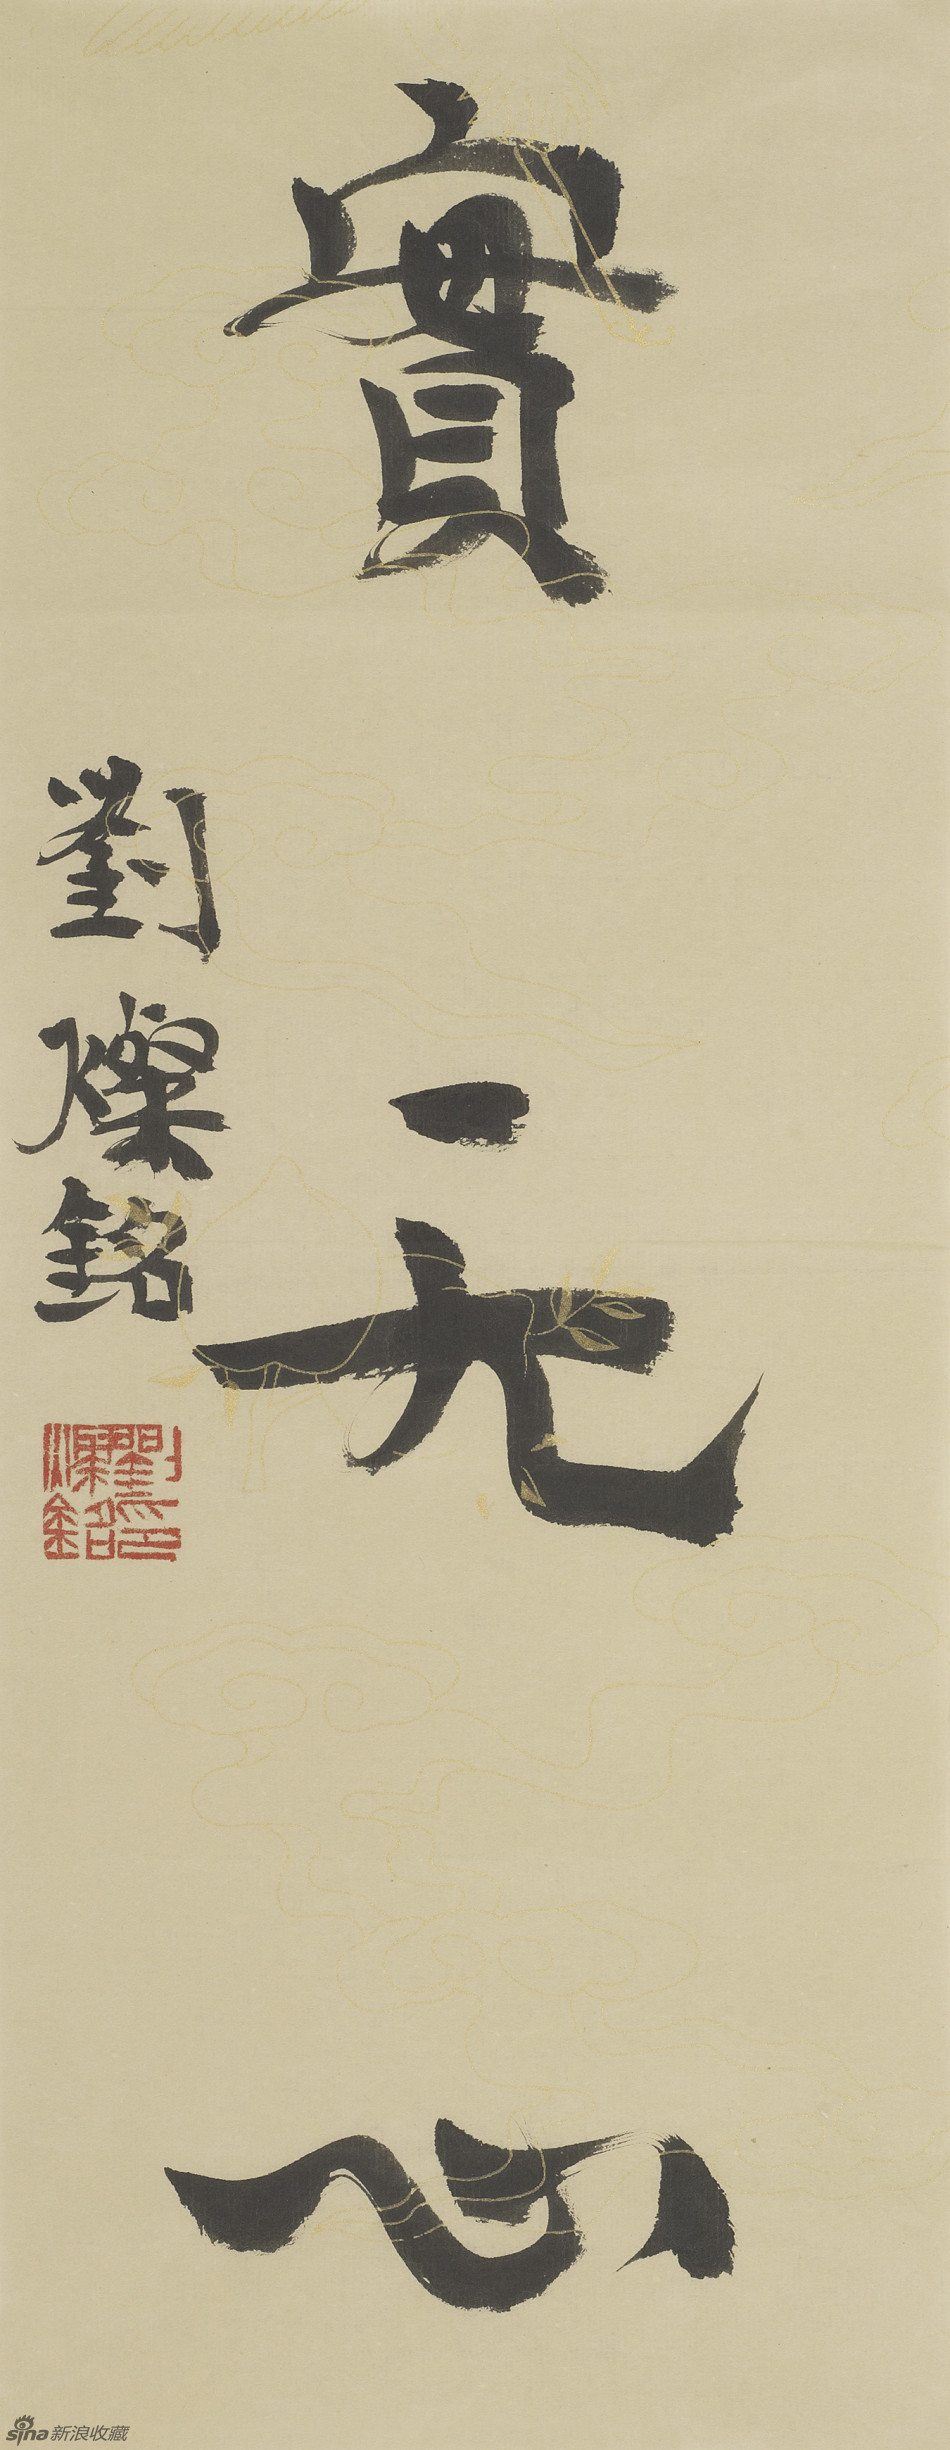 實无心
劉燦銘
劉印
銘
sina新浪收藏